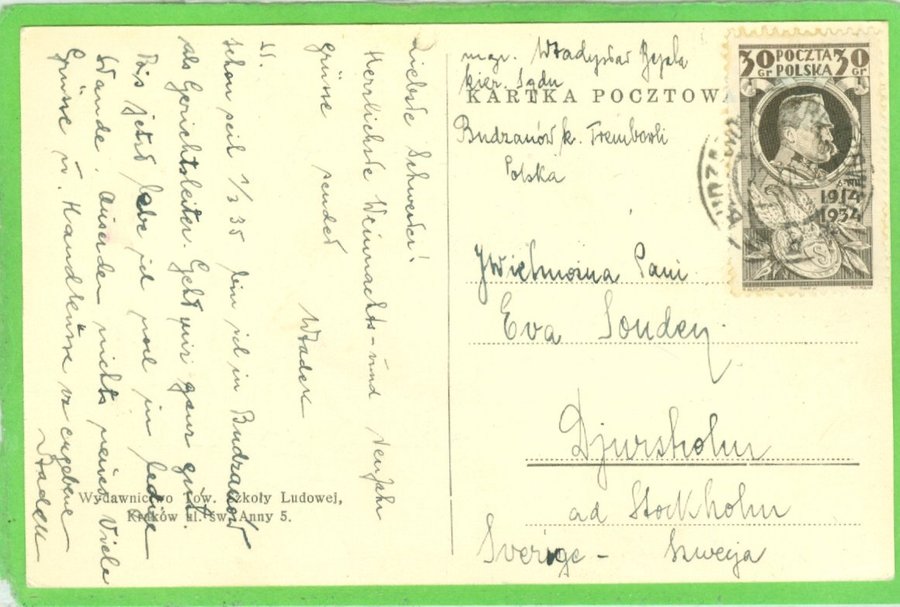 Liebste Schwester!
Herrlichste Weinnachts- und Neujahr
grüsse sendet
Władek
schon seit 1/3 35 bin ich in Budzanów
als Gerichtsleiter. Geht mir ganz gut.
Bis jetzt lebe ich noch in
Viele
Grüsse u. Handküsse
Władek
mgr. Władysław
kier. Sądu
KARTKA POCZTOWA
Budzanów k. Trembowli
Polska
30 POCZTA 30
GR POLSKA GR
1914
1934
Jwielmożna Pani
Eva Londen
Djursholm
ad Stockholm
Sverige - Szwecja
Wydawnictwo Tow. Szkoły Ludowej,
Kraków ul. św. Anny 5.